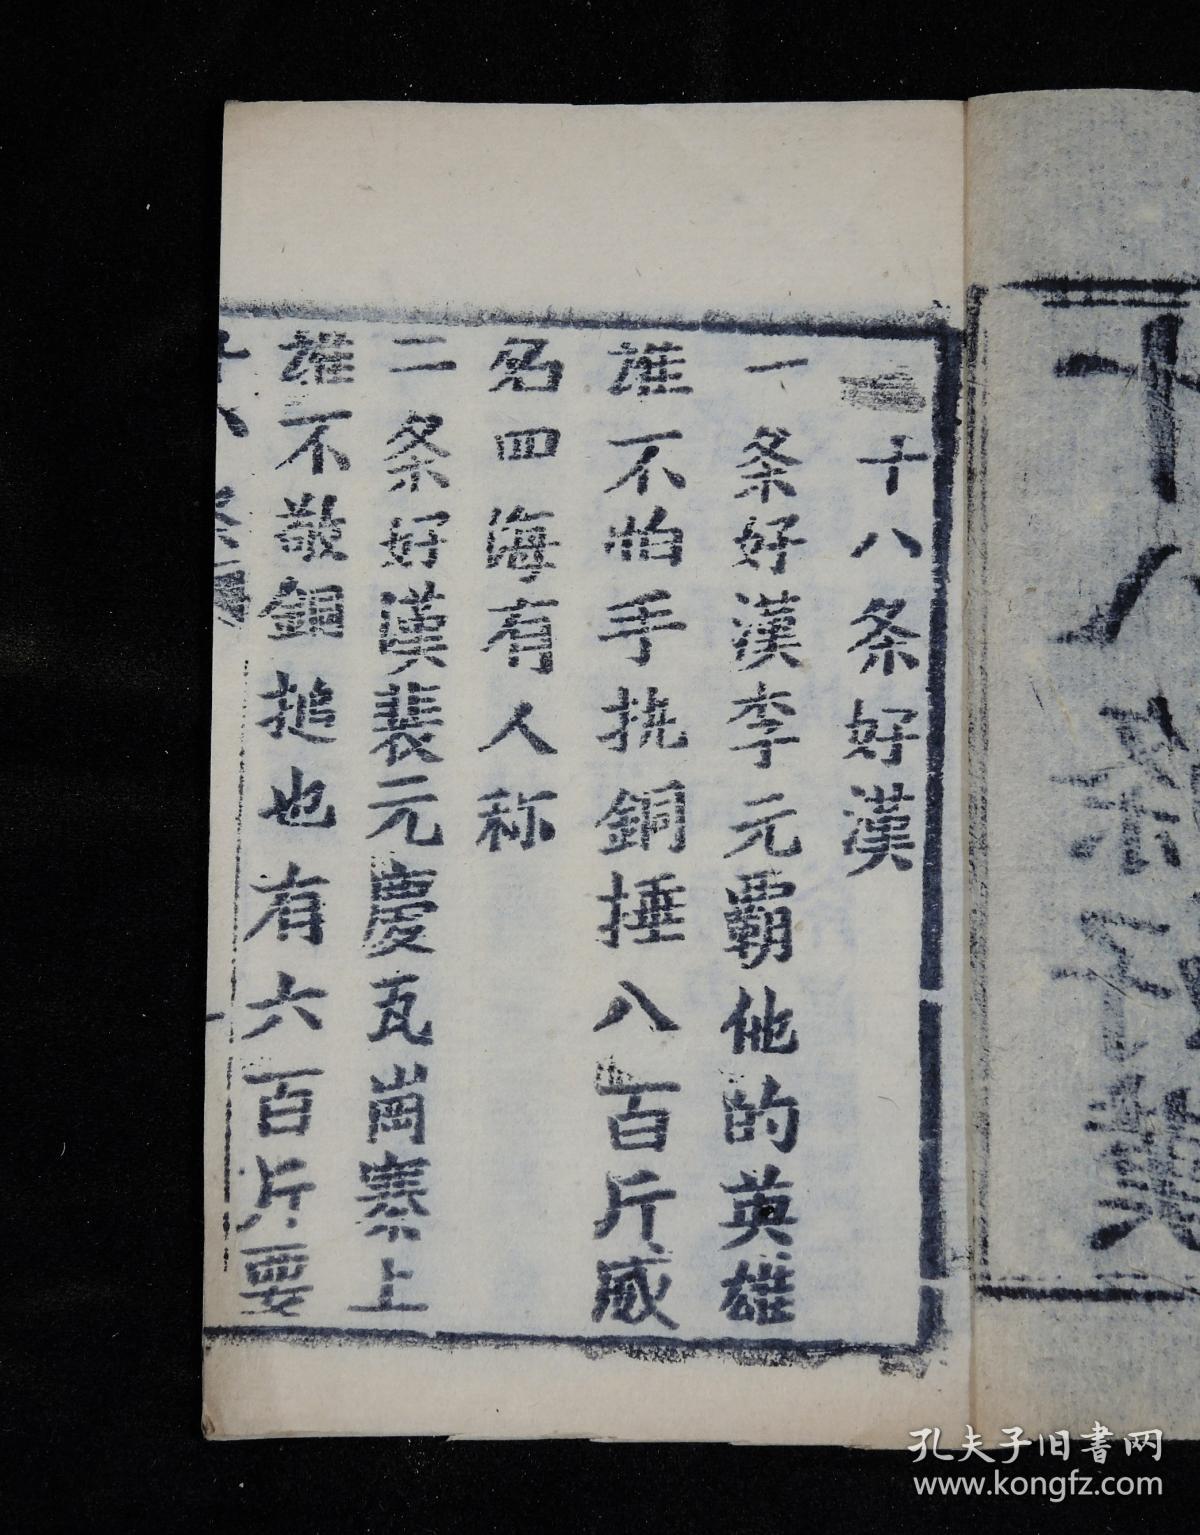 十八条好漢
十八条好漢
一条好漢李元覇他的英雄
雄不怕手挠銅捶八百斤威
名四海有人称
二条好漢裴元慶瓦崗寨上
雄不敬銅搥也有六百斤要
十八
孔夫子旧書网
www.kongfz.com